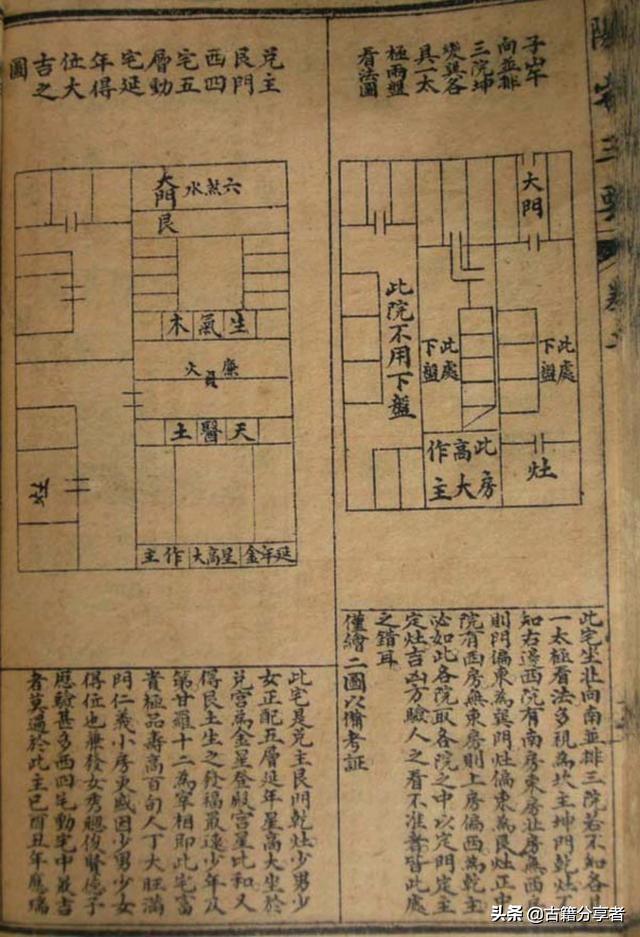 陽宅三要
子山午
向並排
三院坤
巽各
具一太
極兩盤
看法圖
大門
此處
下盤
此處
下盤
此院不用下盤
此房
高大
作主
灶
此宅坐北向南並排三院若不知各
一太極看法多視為坎主坤門乾灶
知右邊西院有南房東房北房無西
則門偏東為巽門灶偏東為艮灶正
院有西房無東房則上房偏西為乾主
必如此各院取各院之中以定門定主
定灶吉凶方驗人之看不准者皆此處
之錯耳
僅繪二圖以備考証
兌主
艮門
西四
宅五
層動
宅延
年得
位大
吉之
圖
六煞水
大門
艮
生氣木
廉貞火
天醫土
延年金星高大作主
灶
此宅是兌主艮門乾灶少男少
女正配五層延年星高大坐於
兌宮為金星登殿宮星比和又
得艮土生之發福最遠少年及
第甘羅十二為宰相即此宅富
貴極品壽高百旬人丁大旺滿
門仁義小房更盛因少男少女
得位也兼發女秀聰俊賢德子
應驗甚多西四宅動宅中最吉
者莫過於此主巳酉丑年應瑞
头条 @古籍分享者